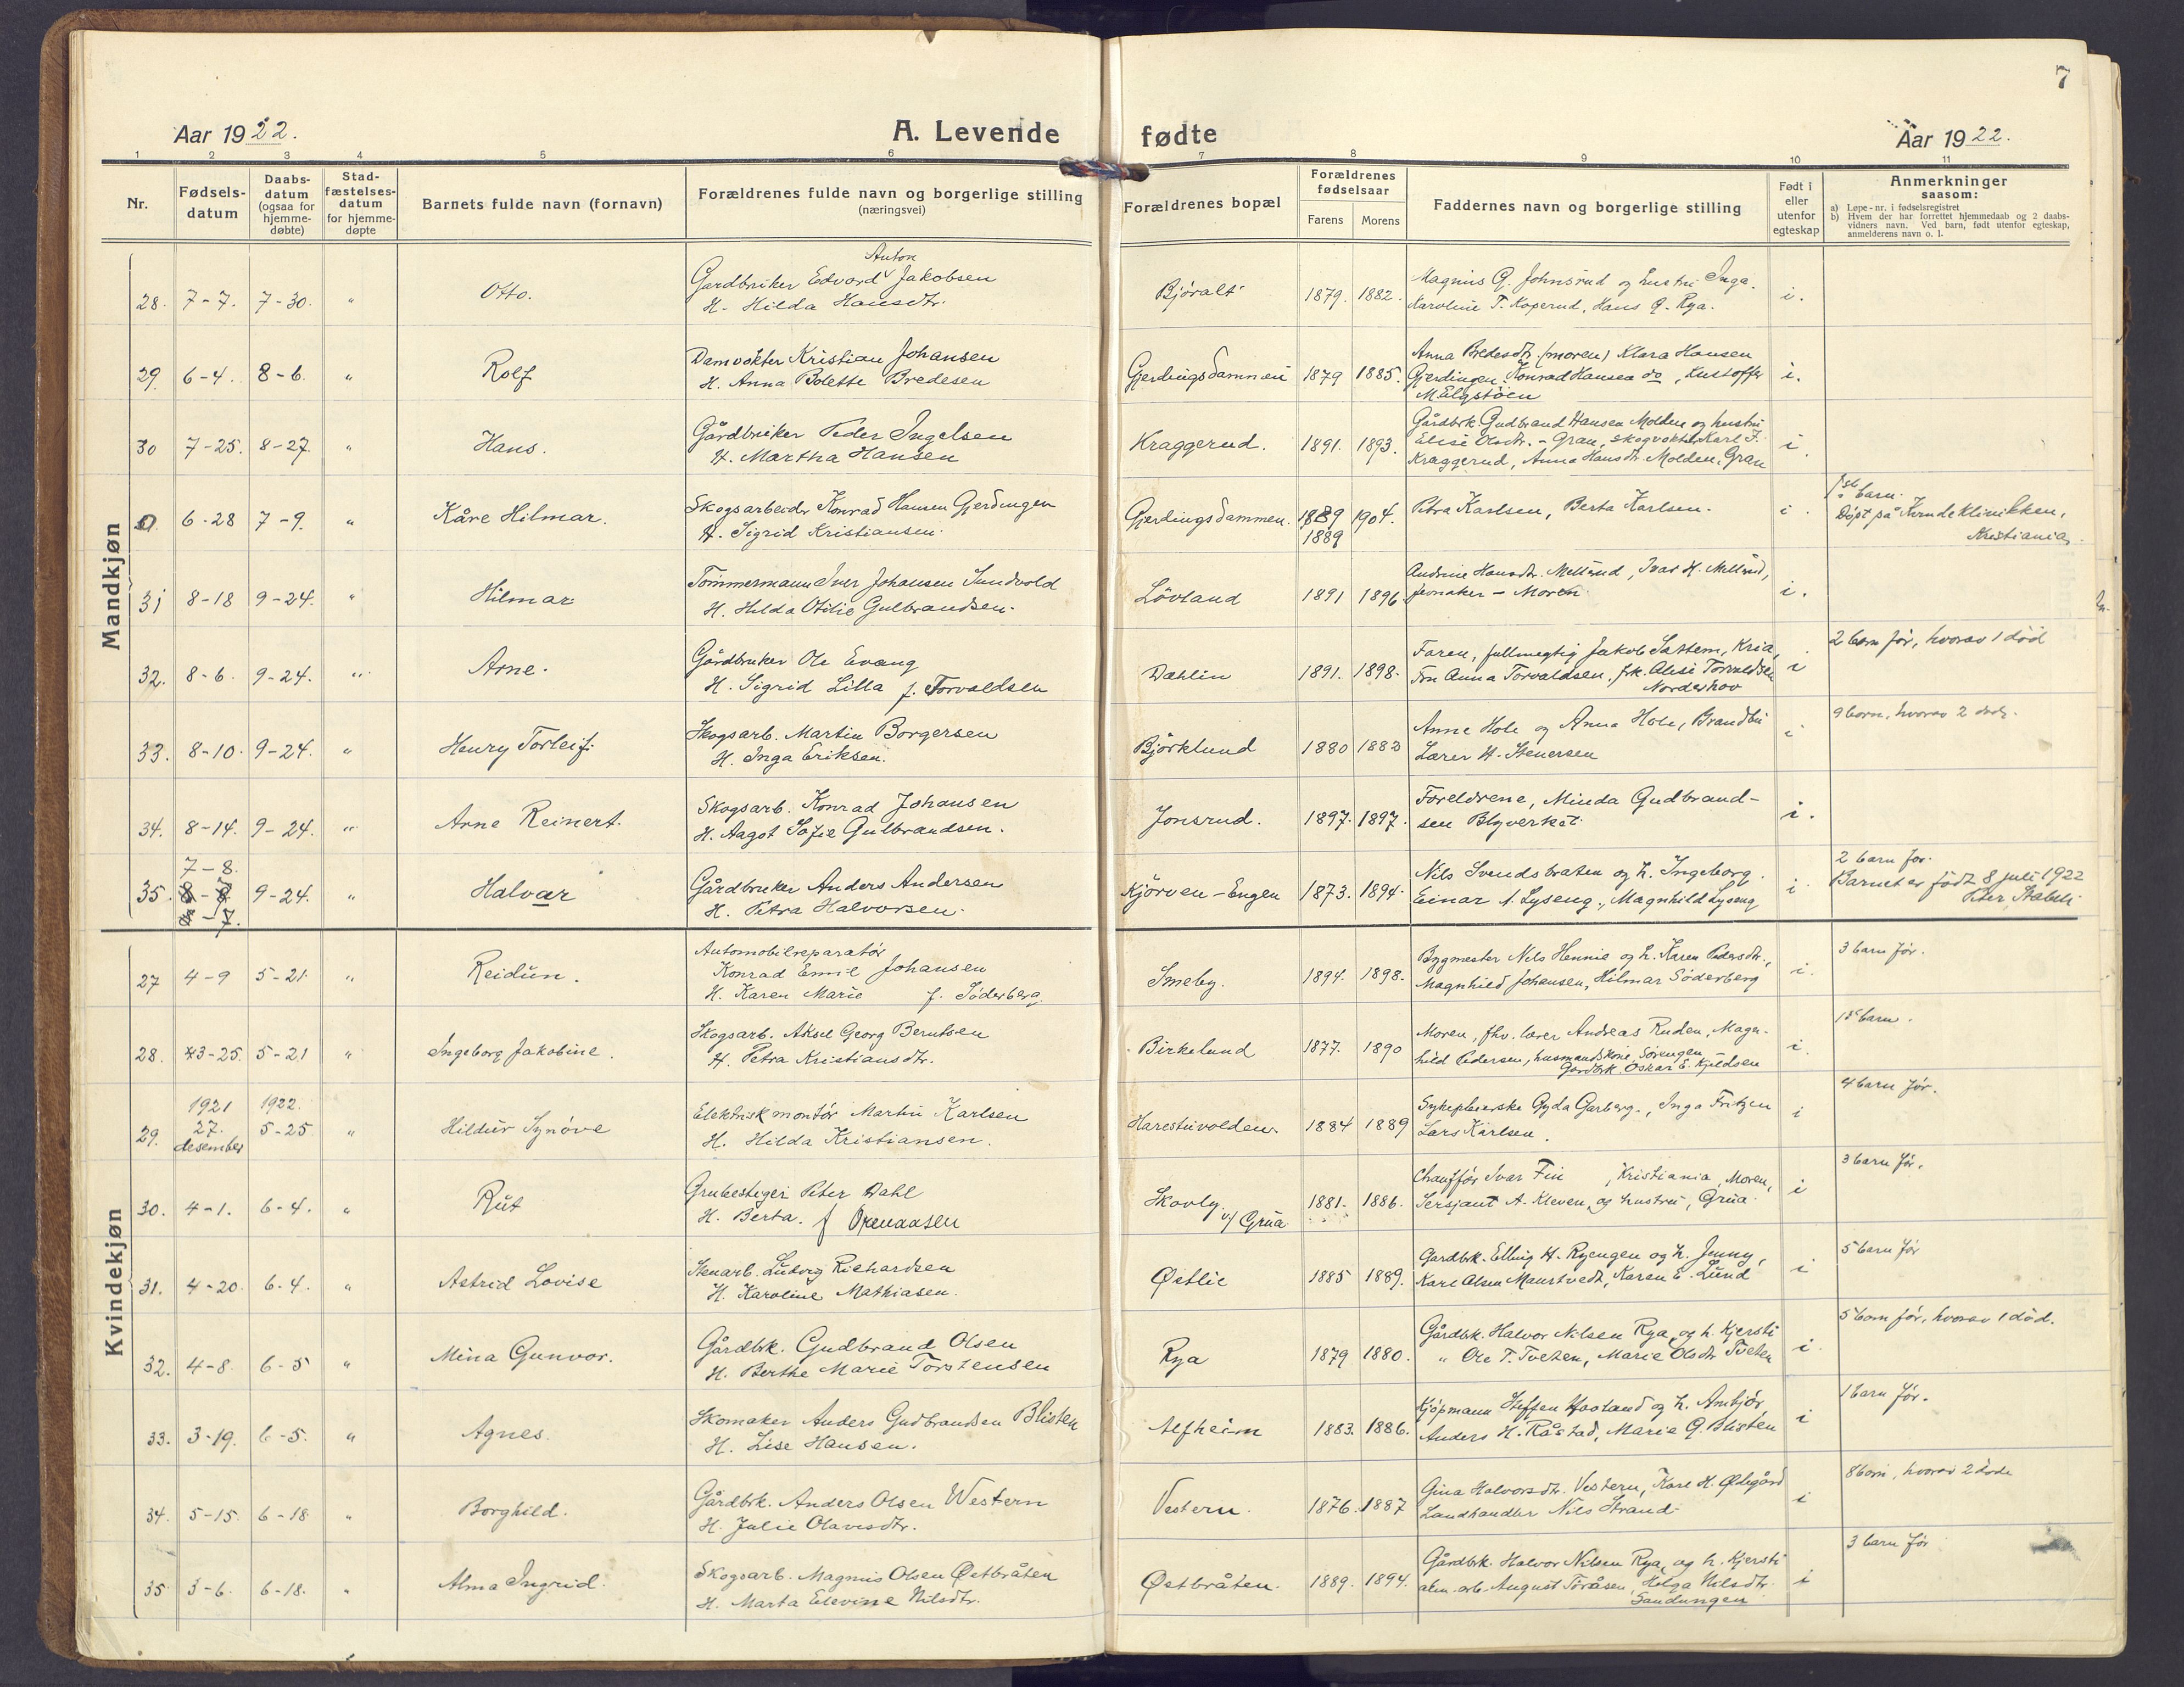 7
Aar 1922.
A. Levende
fødte
Aar 1922.
1 2 3 4 5 6 7 8 9 10 11
Nr.
Fødsels-
datum
Daabs-
datum
(ogsaa for
hjemme-
døbte)
Stad-
fæstelses-
datum
for hjemme-
døpte
Barnets fulde navn (fornavn)
Forældrenes fulde navn og borgerlige stilling
(næringsvei)
Forældrenes bopæl
Forældrenes
fødselsaar
Farens
Morens
Faddernes navn og borgerlige stilling
Født i
eller
utenfor
egteskap
Anmerkninger
saasom:
a) Løpe-nr. i fødselsregistret
b) Hvem der har forrettet hjemmedaab og 2 daabs-
vidners navn. Ved barn, født utenfor egteskap,
anmelderens navn o. l.
Mandkjøn
28. 7-7. 7-30. " Otto.
Anton
Gardbruker Edvard Jakobsen
H. Hilda Hansdtr.
Bjøralt 1879. 1882.
Magnus G. Johnsrud og hustru Inga.
Karoline T. Koperud, Hans G. Rya.
i.
29. 6-4. 8-6. " Rolf
Damvokter Kristian Johansen
H. Anna Bolette Bredesen
Gjerdingsdammen 1879 1885.
Anna Bredesdtr. (moren) Klara Hansen
Gjerdingen. Konrad Hansen do, Kristoffer
M Elgstøen
i.
30 7-25. 8-27. " Hans.
Gårdbruker Peder Ingelsen
H. Martha Hansen
Kraggerud. 1891. 1893.
Gårdbrk. Gudbrand Hansen Molden og hustru
Elise Olsdtr. - Gran, skogvokter Karl J.
Kraggerud, Anna Hansdtr. Molden, Gran
i.
0 6-28 7-9. " Kåre Hilmar.
Skogsarbeider Konrad Hansen Gjerdingen
H. Sigrid Kristiansen.
Gjerdingsdammen. 1889 1904.
1889
Petra Karlsen, Berta Karlsen.
i.
1ste barn.
Døpt på Kvindeklinikken,
Kristiania.
31 8-18 9-24. " Hilmar
Tømmermann Iver Johansen Sundvold
H. Hilda Otilie Gulbrandsen.
Løvland 1891 1896.
Andrine Hansdtr. Mellerud, Ivar H. Mellerud,
Jevnaker - Moren
i.
32. 8-6. 9-24. " Arne.
Gårdbruker Ole Evang
H. Sigrid Lilla f. Torvaldsen
Dæhlin 1891. 1898.
Faren, fullmegtig Jakob Sættem, Kria,
Fru Anna Torvaldsen, frk. Alise Torvaldsen
Norderhov
i
2 barn før, hvorav 1 død
33. 8-10. 9-24. " Henry Torleif.
Skogsarb. Martin Borgersen
H. Inga Eriksen.
Bjørklund 1880 1882
Anne Hole og Anna Hole, Brandbu
Lærer H. Stenersen
i
9 barn, hvorav 2 døde.
34. 8-14. 9-24. " Arne Reinert.
Skogsarb. Konrad Johansen
H. Aagot Sofie Gulbrandsen.
Jonsrud. 1897. 1897.
Foreldrene, Minda Gudbrand-
sen Blyverket.
i.
7-8.
35. 9-24. " Halvar
Gårdbruker Anders Andersen
H. Petra Halvorsen.
Kjørven-Engen 1873. 1894.
Nils Svendsbraten og h. Ingeborg.
Einar A. Lyseng., Magnhild Lyseng
i.
2 barn før.
Barnet er født 8 juli 1922
Kvindekjøn
27 4-9 5-21. " Reidun.
Automobilreparatør
Konrad Emil Johansen
H. Karen Marie f. Søderberg.
Smeby. 1894. 1898.
Bygmester Nils Hennie og h. Karen Pedersdtr.,
Magnhild Johansen, Hilmar Søderberg
i.
3 barn før.
28. 3-25. 5-21 " Ingeborg Jakobine.
Skogsarb. Aksel Georg Berntsen
H. Petra Kristiansdtr.
Birkelund 1877. 1890
Moren, fhv. lærer Andreas Ruden, Magn-
hild Pedersen, husmandskone, Sørengen
Gardbrk. Oskar E. Kjeldsen
i.
1ste barn.
1921 1922.
29. 27. 5-25. " Hildur Synøve
desember
Elektriskmontør Martin Karlsen
H. Hilda Kristiansen.
Harestuvolden. 1884 1889
Sykepleierske Gyda Garberg., Inga Fritzen
Lars Karlsen.
i
4 barn før.
30. 4-1. 6-4. " Rut
Grubestiger Peter Dahl
H. Berta. f Grenaasen
Skovly v/ Grua 1881. 1886.
Chauffør Ivar Fin , Kristiania, Moren,
Sersjant A. Kleven, og hustru, Grua.
i
3 barn før.
31. 4-20. 6-4. " Astrid Lovise
Stenarb. Ludvig Richardsen
H. Karoline Mathiasen.
Østlie 1885 1889.
Gardbrk. Elling H. Ryengen og h. Jenny,
Karl Olsen Maurtvedt, Karen E. Lund
i
5 barn før
32. 4-8. 6-5 " Mina Gunvor.
Gårdbrk. Gudbrand Olsen
H. Berthe Marie Torstensen
Rya 1879 1880.
Gårdbrk. Halvor Nilsen Rya, og h. Kjersti
" Ole T. Tveten, Marie Olsdtr Tveten
i.
5 barn før, hvorav 1 død.
33. 3-19. 6-5. " Agnes.
Skomaker Anders Gudbrandsen Blisten
H. Lise Hansen.
Alfheim 1883. 1886.
Kjøpmann Steffen Haaland og h. Arnbjør,
Anders H. Råstad, Marie G. Blisten
i
1 barn før.
34. 5-15. 6-18. " Borghild.
Gårdbrk. Anders Olsen Western
H. Julie Olavesdtr.
Vestern. 1876. 1887
Gina Halvorsdtr. Vestern, Karl H. Ødegård
Landhandler Nils Strand.
i
8 barn, hvorav 2 døde
35. 3-6. 6-18. " Alma Ingrid.
Skogsarb. Magnus Olsen Østbråten
H. Marta Elevine Nilsdtr.
Østbråten. 1889. 1894.
Gårdbrk. Halvor Nilsen Rya, og h. Kjersti
alm. arb. August Toråsen, Helga Nilsdtr.
Sandungen
i
3 barn før